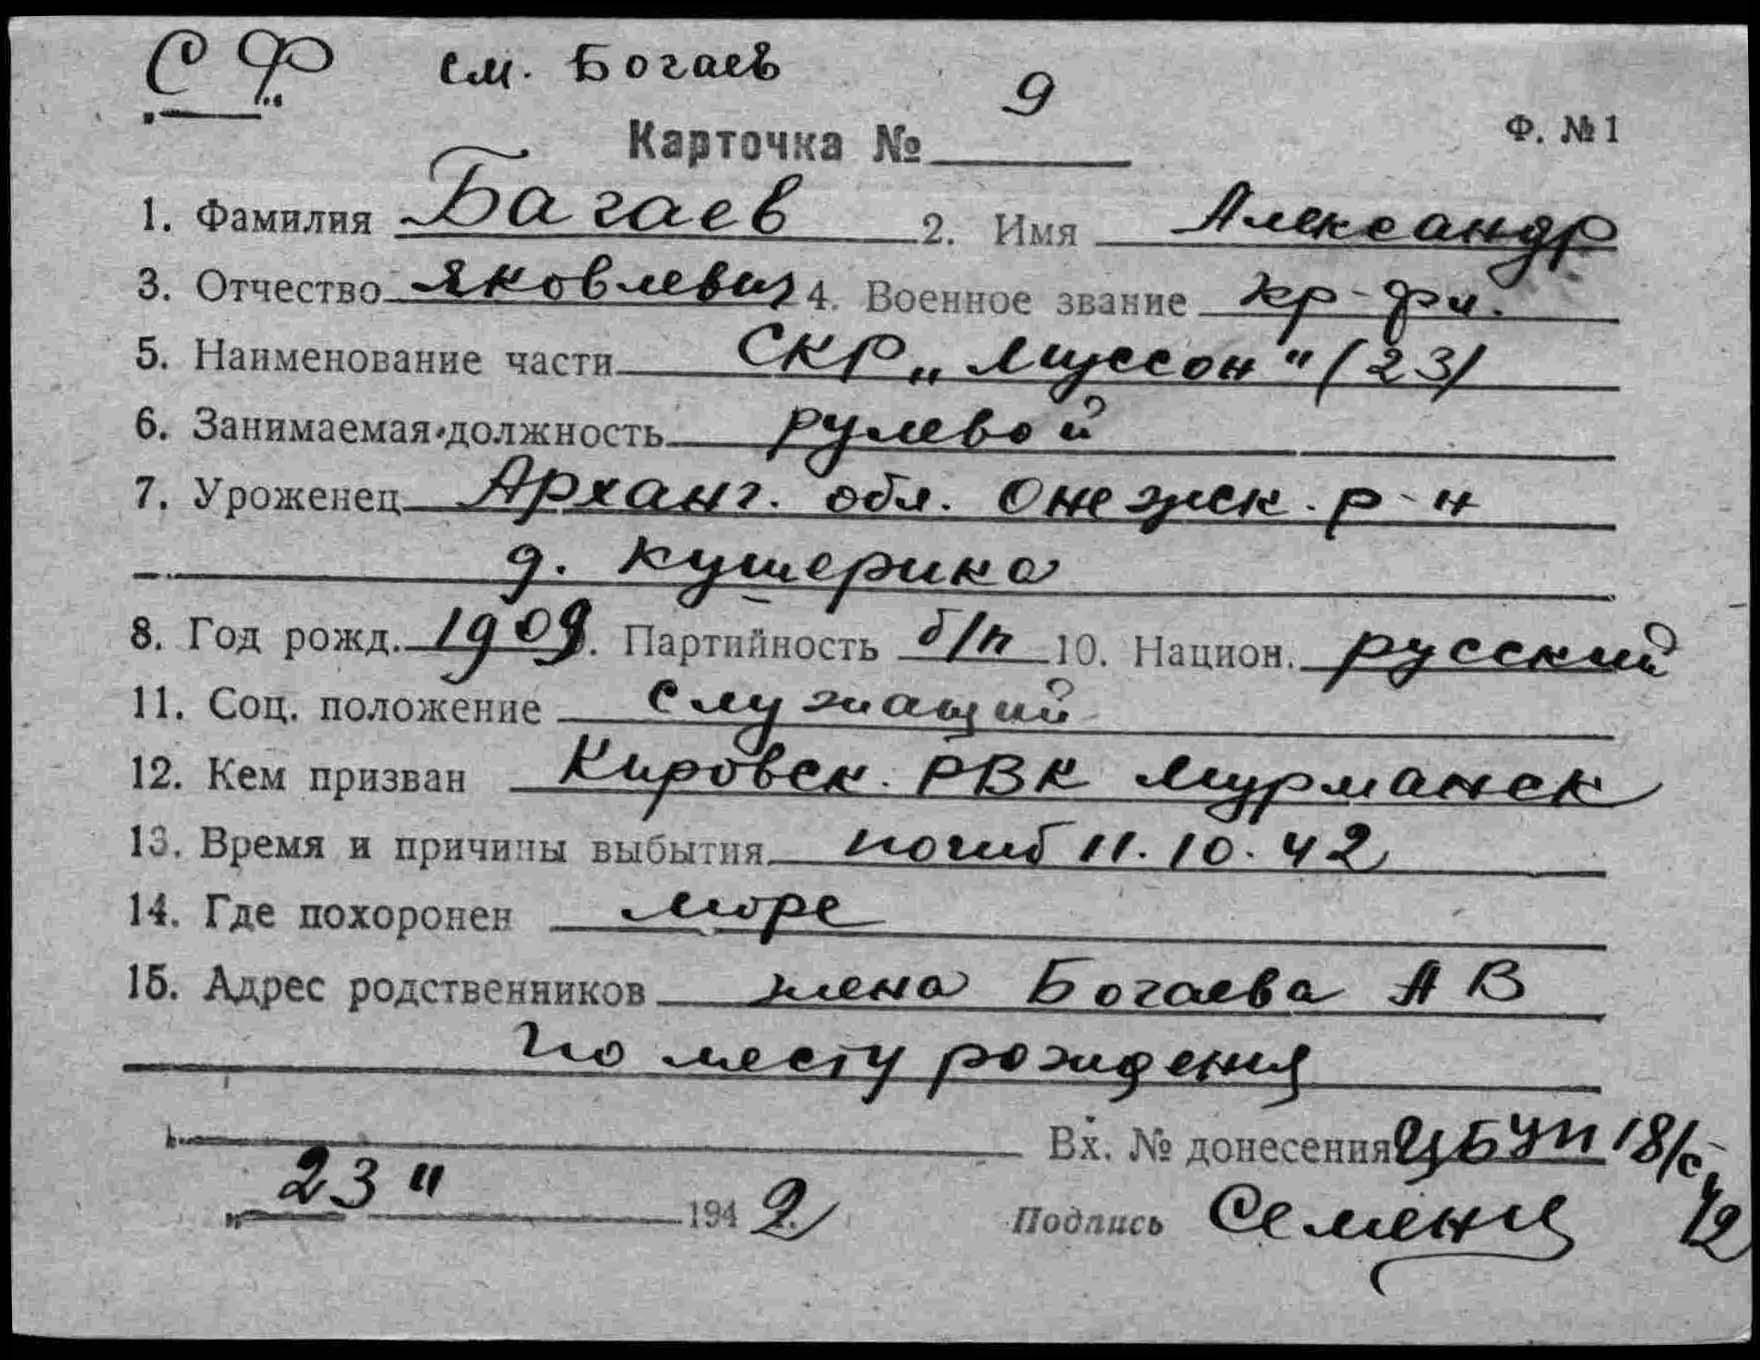 СФ см. Богаев
Карточка № 9 Ф. №1
1. Фамилия Багаев 2. Имя Александр
3. Отчество Яковлевич 4. Военное звание кр-фл.
5. Наименование части СКР „Муссон" (23)
6. Занимаемая должность рулевой
7. Уроженец Арханг. обл. Онежск. р-н
д. Кушерика
8. Год рожд. 1909 9. Партийность б/п 10. Национ. русский
11. Соц. положение служащий
12. Кем призван Кировск. РВК Мурманск
13. Время и причины выбытия погиб 11.10.42
14. Где похоронен море
15. Адрес родственников жена Богаева А В
по месту рождения
Вх. № донесения ЦБУП 18/с
42
„23" 1942
Подпись